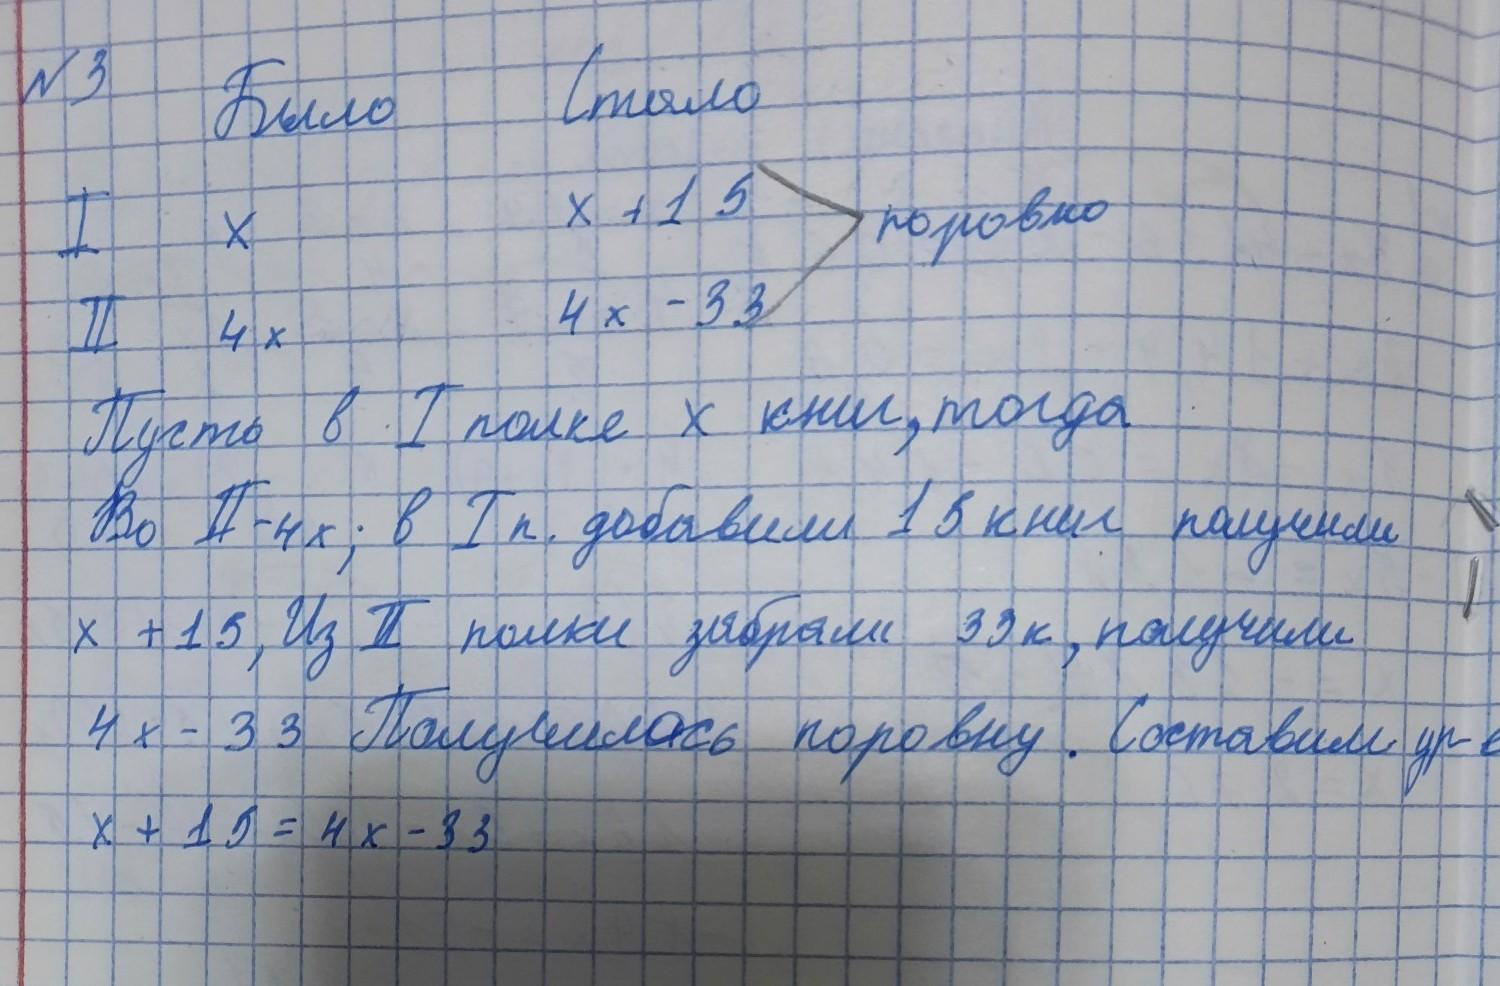 N3
Было Стало
I x x + 15
поровно
II 4x 4x - 33
Пусть в I полке x книг, тогда
Во II - 4x; в I п. добавили 15 книг получили
x + 15, Из II полки забрали 33к, получили
4x - 33 Получилась поровну. Составим ур-е
x + 15 = 4x - 33